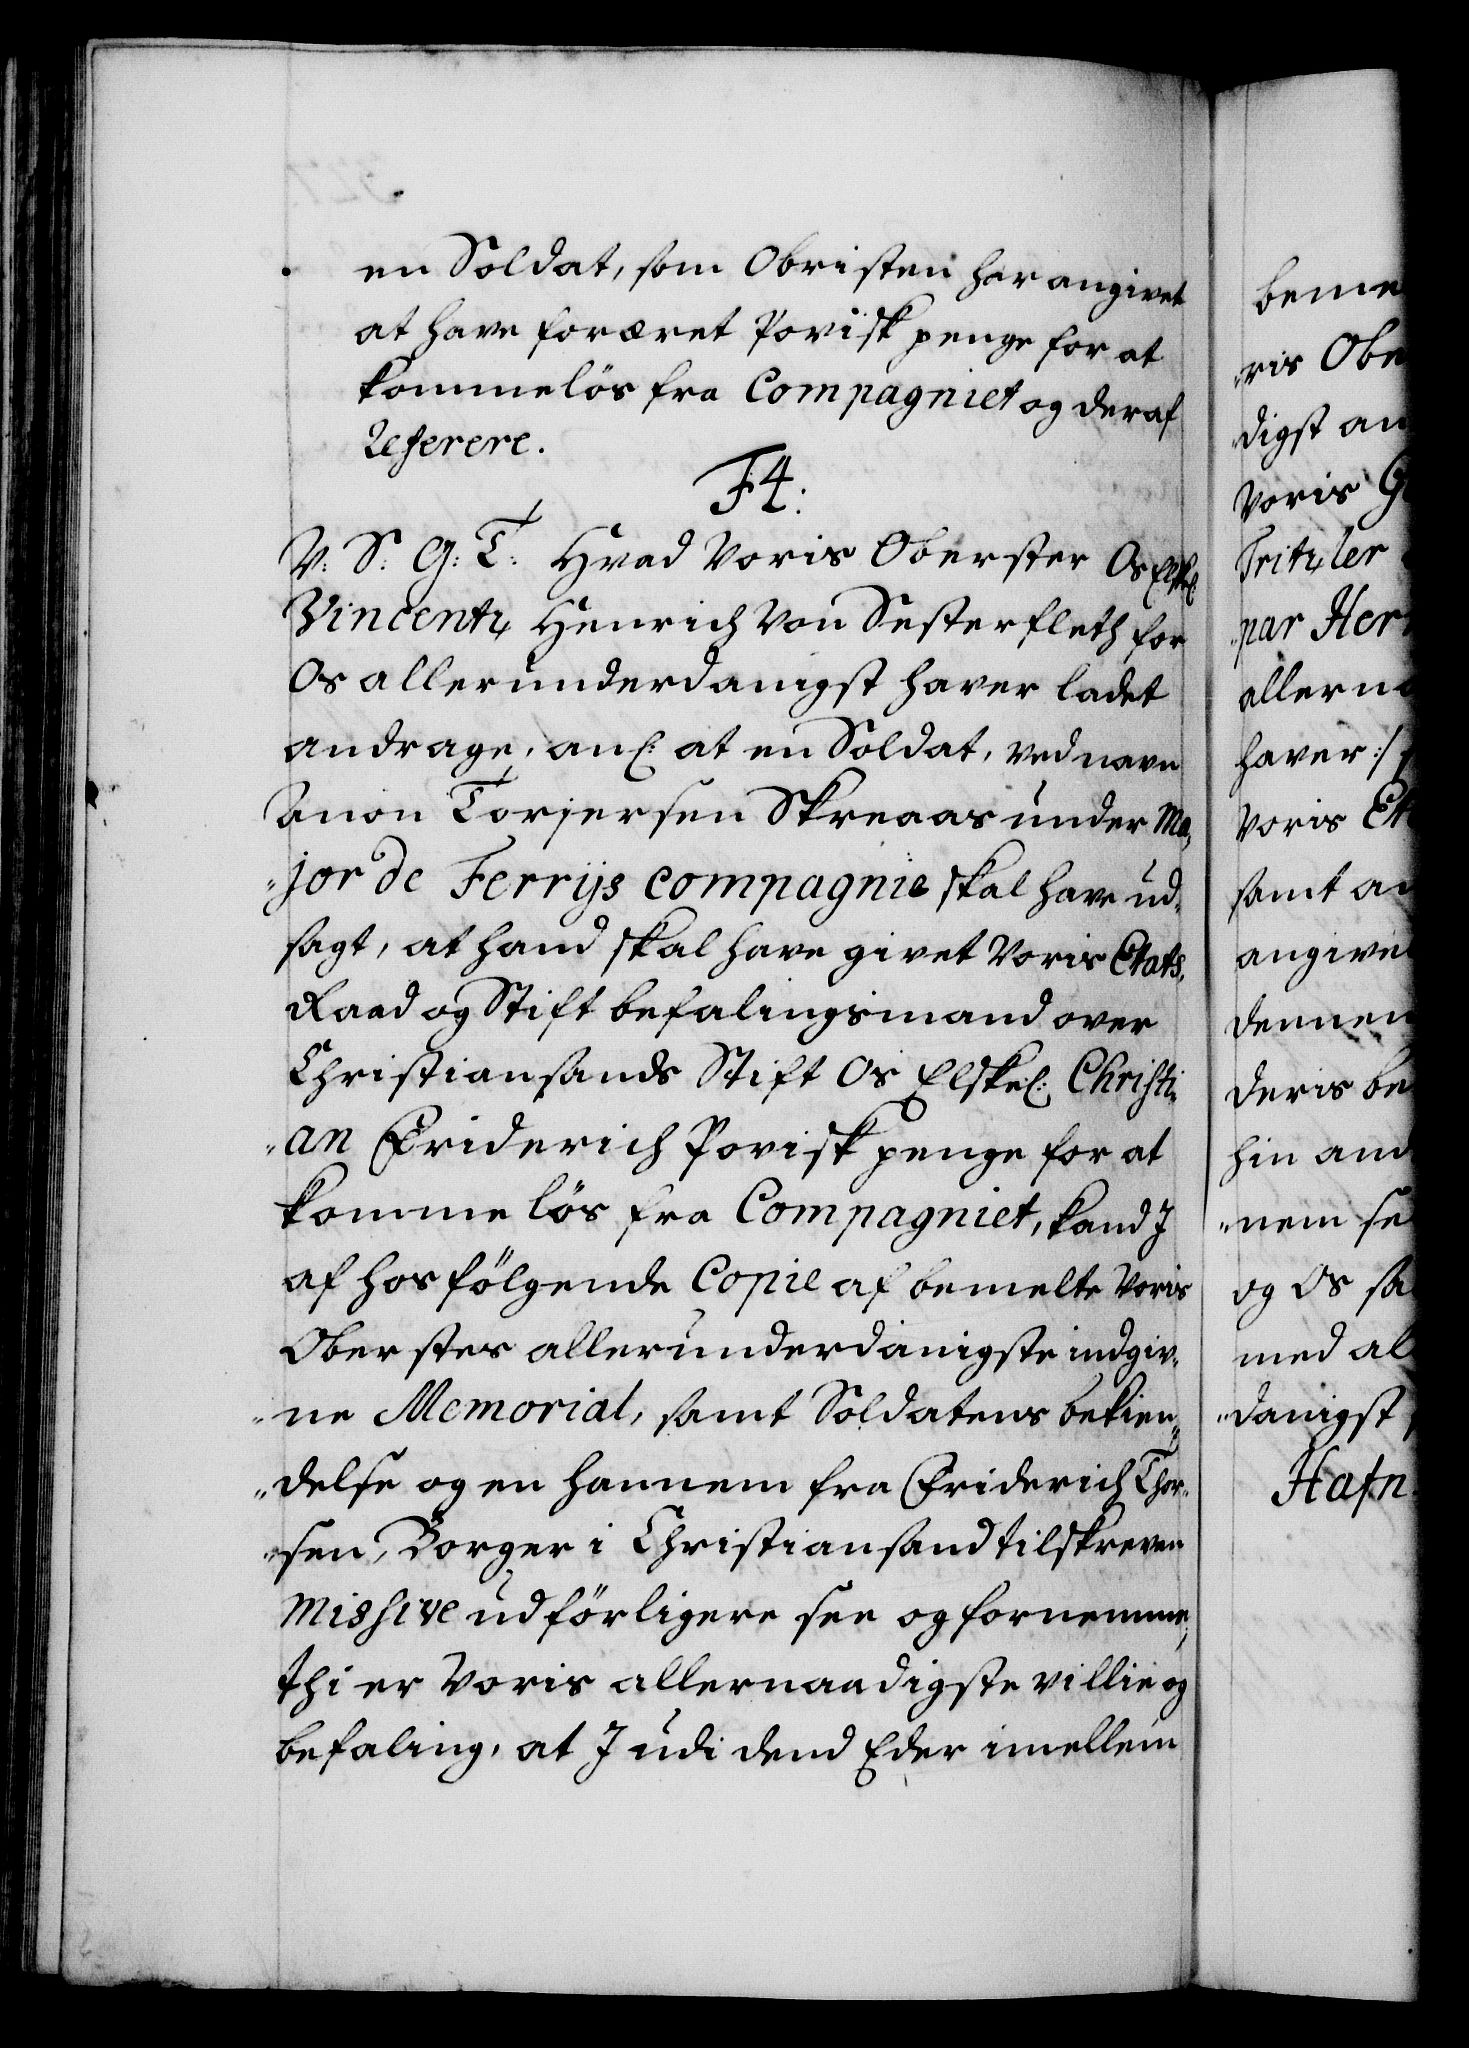 en Soldat, som Obristen har angivet
at have foræret Povisk penge for at
komme løs fra Compagniet og deraf
Referere.
F4.
V: S: G: T: Hvad Voris Oberster Os Elskel:
Vincentz Henrich Von Sesterfleth for
Os allerunderdanigst haver ladet
andrage, anl: at en Soldat, ved navn
Anon Torjersen Skreaas under Ma,,
,,jor de Ferrijs compagnie skal have ud,,
sagt, at hand skal have givet Voris Etats,,
Raad og Stift befalingsmand over
Christiansands Stift Os Elskel: Christi,,
,,an Friderich Povisk penge for at
komme løs fra Compagniet, kand J
af hos følgende Copie af bemelte Voris
Oberstes allerunderdanigste indgiv,,
,,ne Memorial, samt Soldatens bekien,,
,,delse og en hannem fra Friderich Thor,,
,,sen, Borger i Christiansand tilskreven
Missive udförligere see og fornemme,
thi er Voris allernaadigste villie og
befaling, at J udi dend Eder imellem
beme
,,ris Obe
digst an
Voris G
Tritzler
,,par Her
allerna
haver :/
Voris Et
samt an
angivel
dennem
deris be
hin and
,,nem se
og Os sa
med al
,,danigst
Hafn